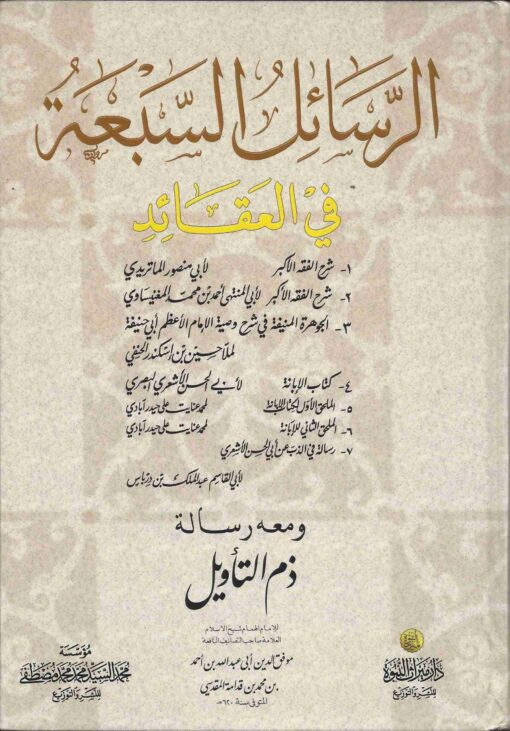 الرَّسَائِلُ السَّبْعَةُ
فِي العَقَائِدِ
١- شرح الفقه الأكبر لأبي منصور الماتريدي
٢- شرح الفقه الأكبر لأبي المنتهى أحمد بن محمد المغنيساوي
٣- الجوهرة المنيفة في شرح وصية الإمام الأعظم أبي حنيفة
لملا حسين بن إسكندر الحنفي
٤- كتاب الإبانة لأبي الحسن الأشعري البصري
٥- الملحق الأول لكتاب الإبانة لمحمد عنايت علي حيدرآبادي
٦- الملحق الثاني للإبانة لمحمد عنايت علي حيدرآبادي
٧- رسالة في الذب عن أبي الحسن الأشعري
لأبي القاسم عبد الملك بن درباس
ومعه رسالة
ذم التأويل
للإمام الهمام شيخ الاسلام
العلامة صاحب التصانيف النافعة
موفق الدين أبي عبد الله بن أحمد
بن محمد بن قدامة المقدسي
المتوفى سنة ٦٢٠هـ
دار ميراث النبوة
للنشر والتوزيع
مؤسسة
محمد السيد محمد محمد مصطفى
للنشر والتوزيع